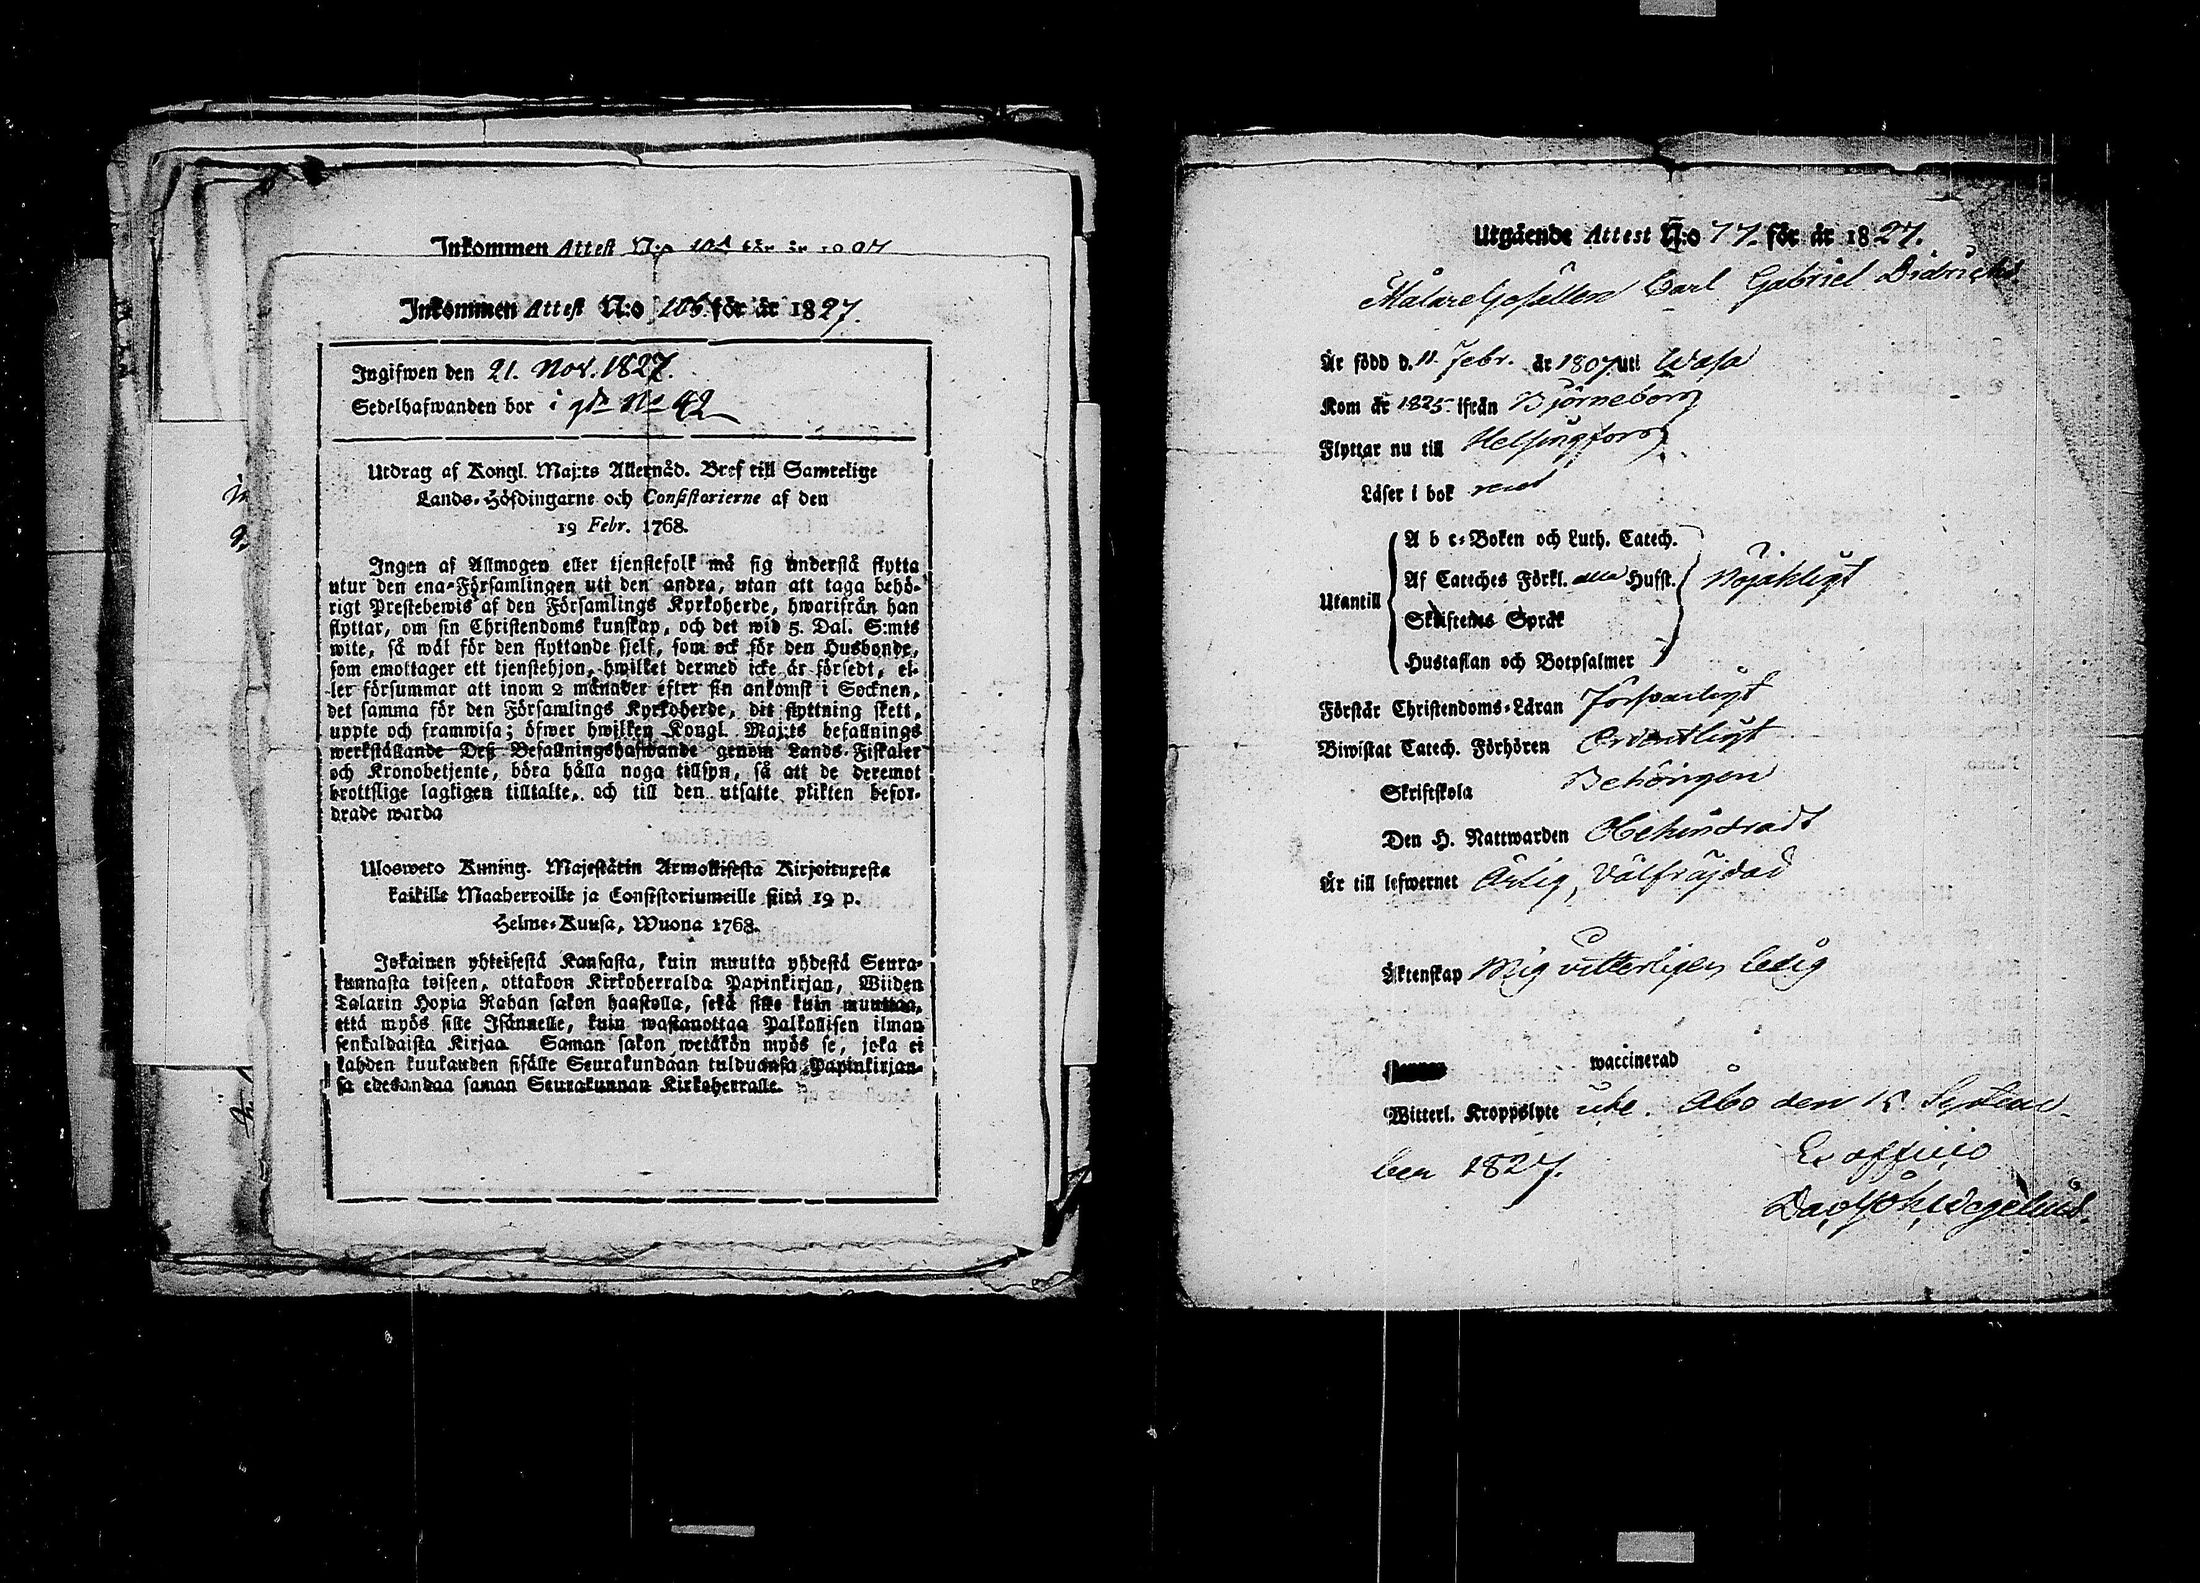 Inkommen Attest N:o för år
Inkommen Attest N:o 106 för år 1827.
Ingifwen den 21. Nov. 1827.
Sedelhafwanden bor i gdn No 42
Utdrag af Kongl. Maj:ts Allernåd. Bref till Samtelige
Lands-Höfdingarne och Consistorierne af den
19 Febr. 1768.
Ingen af Allmogen eller tjenstefolk må sig understå flytta
utur den ena-Församlingen uti den andra, utan att taga behö-
rigt Prestebewis af den Församlings Kyrkoherde, hwarifrån han
flyttar, om sin Christendoms kunskap, och det wid 5. Dal. S:mts
wite, så wäl för den flyttande sjelf, som ock för den Husbonde,
som emottager ett tjenstehjon, hwilket dermed icke är försedt, el-
ler försummar att inom 2 månader efter sin ankomst i Socknen,
det samma för den Församlings Kyrkoherde, dit flyttning skett,
uppte och framwisa; öfwer hwilken Kongl. Maj:ts befallnings
werkställande Deß Befallningshafwande genom Lands-Fiskaler
och Kronobetjente, böra hålla noga tillsyn, så att de deremot
brottslige lagligen tilltalte, och till den utsatte plikten befor-
drade warda
Uloswero Kuning. Majestätin Armollisesta Kirjoituxesta
kaikille Maaherroille ja Consistoriumeille siitä 19 p.
Helme-Kuusa, Wuona 1768.
Jokainen yhteisestä Kansasta, kuin muutta yhdestä Seura-
kunnasta toiseen, ottakoon Kirkoherralda Papinkirjan, Wiiden
Talarin Hopia Rahan sakon haastolla, sekä sille kuin muuttaa,
että myös sille Isännelle, kuin wastanottaa Palkollisen ilman
senkaldaista Kirjaa Saman sakon wetäkön myös se, joka ei
kahden kuukauden sisälle Seurakundaan tulduansa Papinkirjan-
sa edesandaa saman Seurakunnan Kirkoherralle.
Utgående Attest N:o 77. för år 1827.
Målare Gesällen Carl Gabriel
Är född d. 11. Febr. år 1807 uti Wasa
Kom år 1825. ifrån Björneborg
Flyttar nu till Helsingfors
Läser i bok rent
A b c-Boken och Luth. Catech.
Af Cateches Förkl. alla Husst.
Utantill
Nöjaktigt
Skriftenes Språk
Hustaflan och Botpsalmer
Förstår Christendoms-Läran Försvarligt
Biwistat Catech. Förhören Ordentligt
Skriftskola Behörigen
Den H. Nattwarden Obehindradt
Är till lefwernet Ärlig, Välfräjdad
Äktenskap Mig vitterligen ledig
waccinerad
Witterl. Kroppslyte Åbo den 15 Septem-
ber 1827.
Ex officio